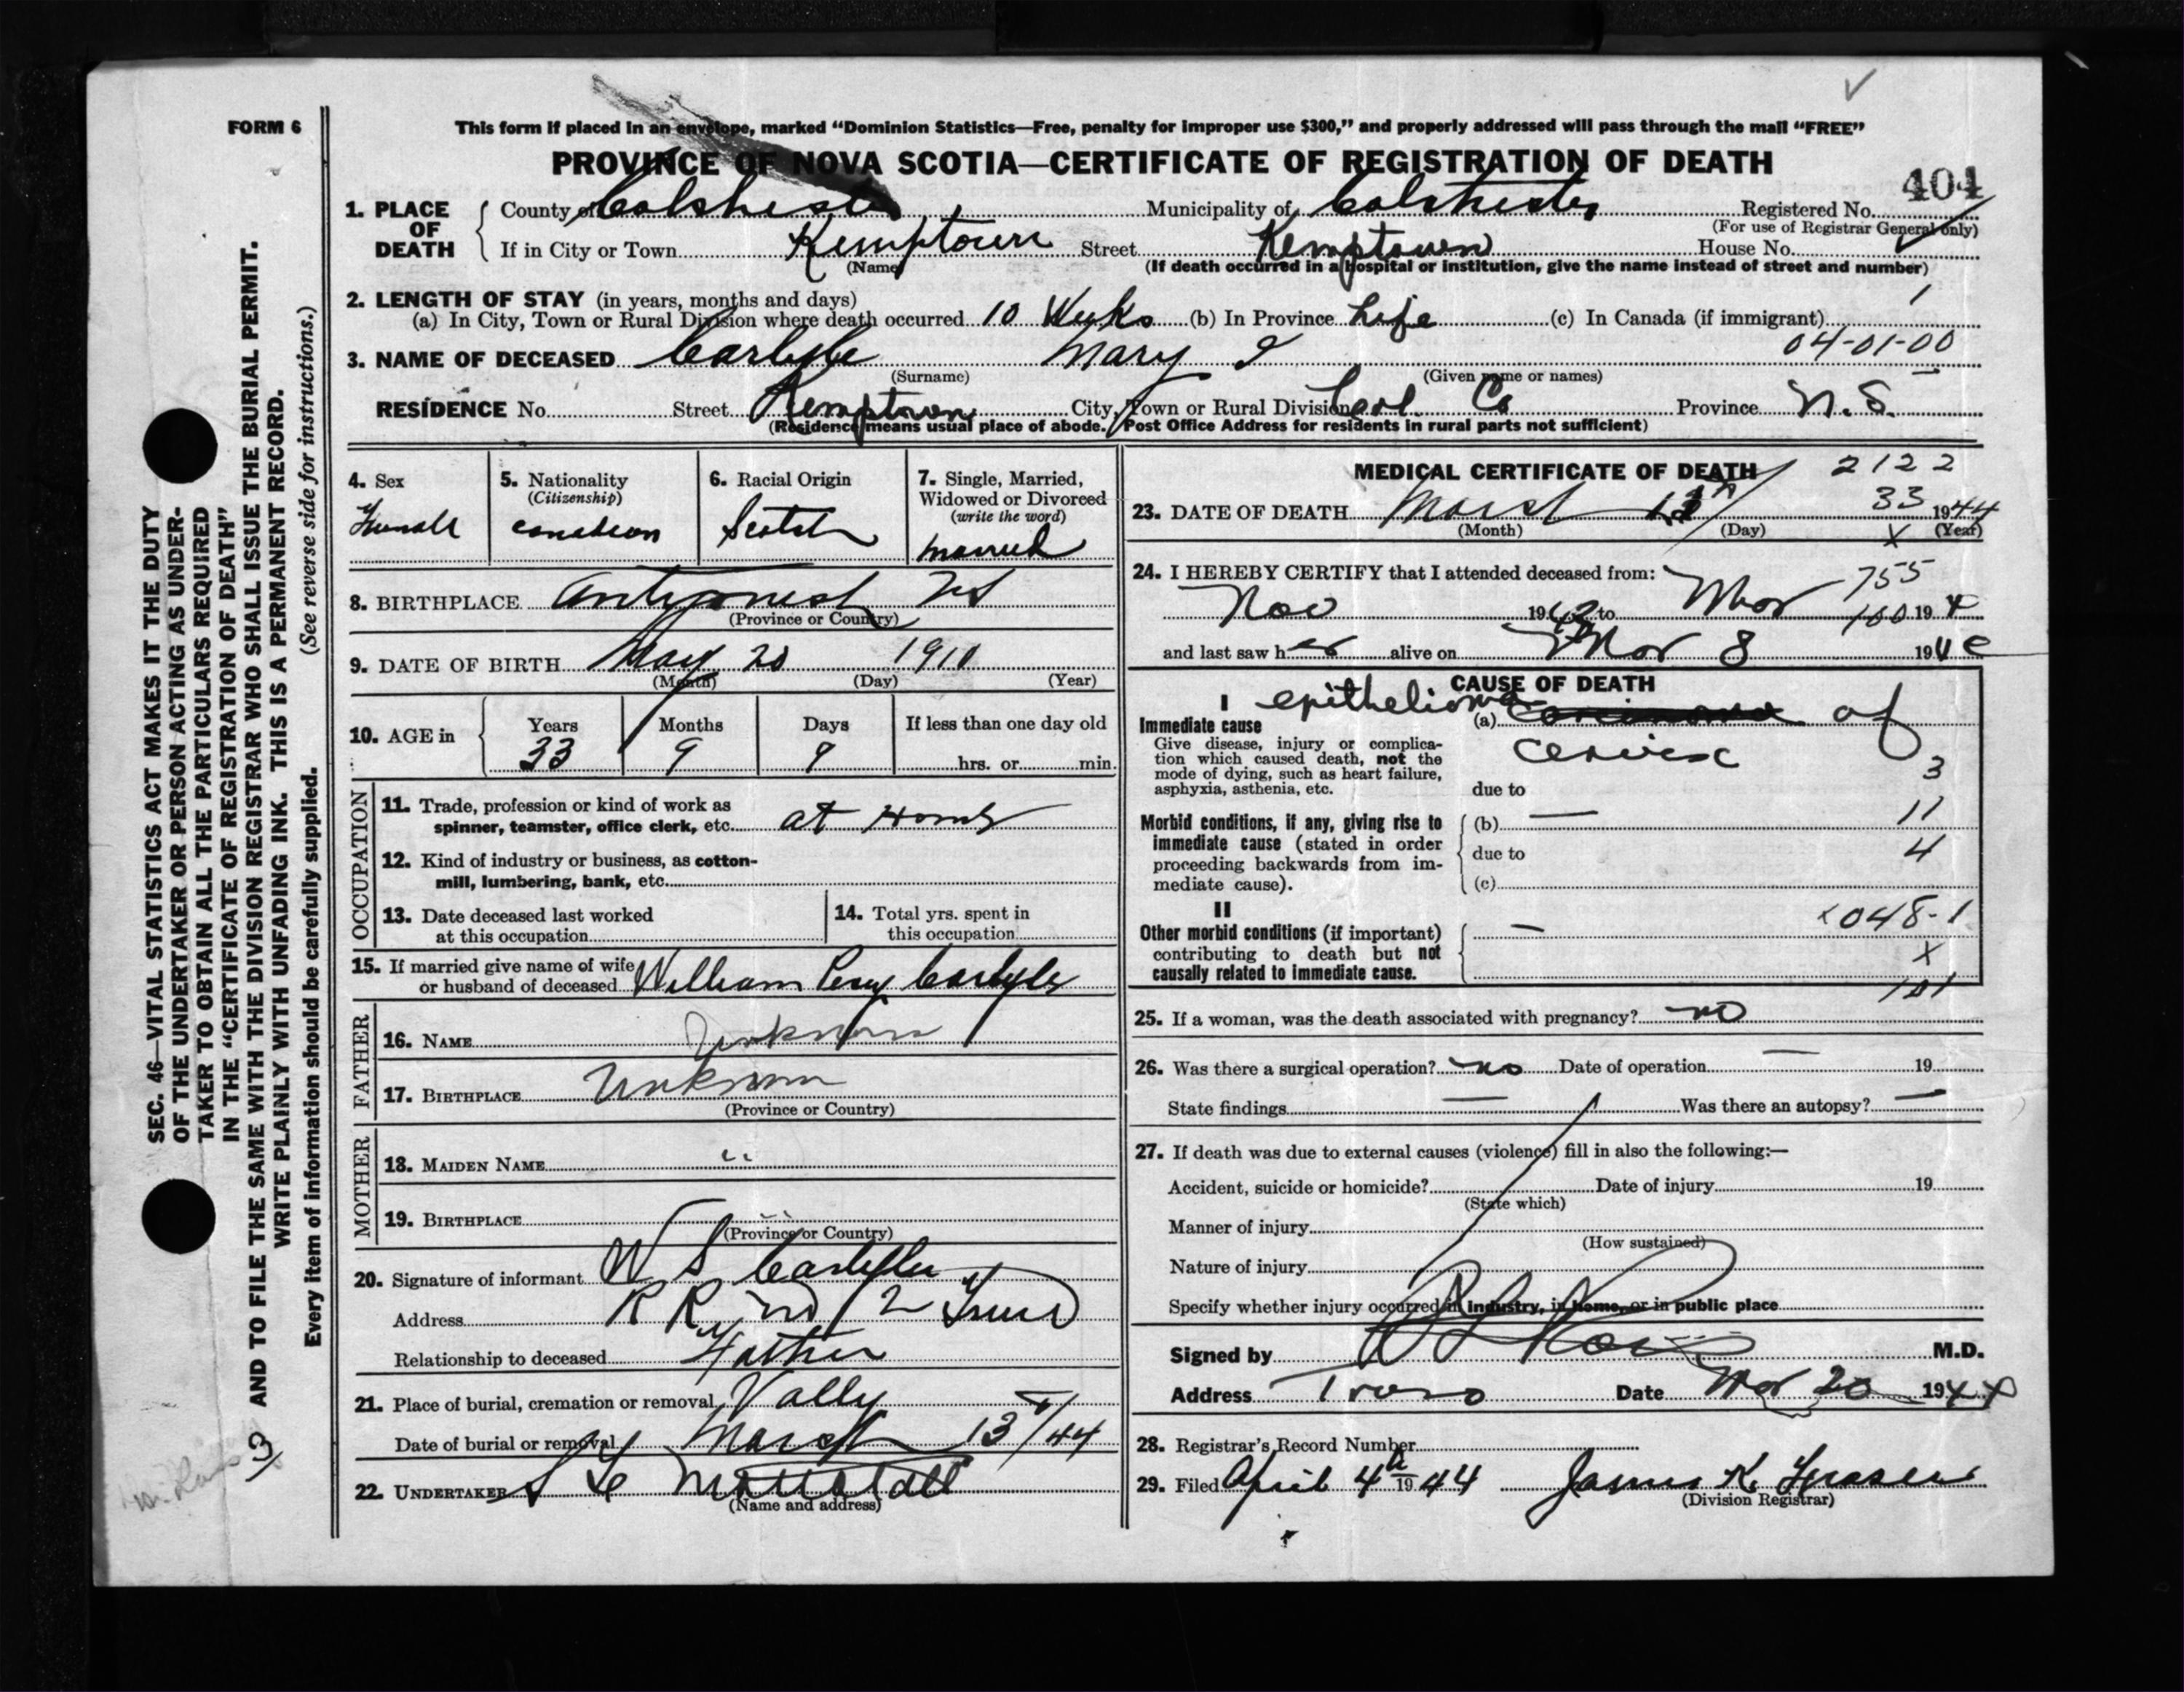 FORM 6
This form if placed in an envelope, marked "Dominion Statistics—Free, penalty for improper use $300," and properly addressed will pass through the mail "FREE"
PROVINCE OF NOVA SCOTIA—CERTIFICATE OF REGISTRATION OF DEATH
404
1. PLACE OF DEATH County of Colchester Municipality of Colchester Registered No.
(For use of Registrar General only)
If in City or Town Kemptown Street Kemptown House No.
(Name) (If death occurred in a hospital or institution, give the name instead of street and number)
2. LENGTH OF STAY (in years, months and days)
(a) In City, Town or Rural Division where death occurred 10 Weeks (b) In Province Life (c) In Canada (if immigrant)
04-01-00
3. NAME OF DECEASED Carlyle Mary I
(Surname) (Given name or names)
RESIDENCE No. Street Kemptown City, Town or Rural Division Col. Co Province N.S.
(Residence means usual place of abode. Post Office Address for residents in rural parts not sufficient)
4. Sex Female
5. Nationality (Citizenship) canadian
6. Racial Origin Scotch
7. Single, Married, Widowed or Divorced (write the word) Married
8. BIRTHPLACE Antigonish NS
(Province or Country)
9. DATE OF BIRTH May 20 1910
(Month) (Day) (Year)
10. AGE in Years Months Days If less than one day old
33 9 9 hrs. or min.
OCCUPATION
11. Trade, profession or kind of work as
spinner, teamster, office clerk, etc. at Home
12. Kind of industry or business, as cotton-
mill, lumbering, bank, etc.
13. Date deceased last worked
at this occupation
14. Total yrs. spent in
this occupation
15. If married give name of wife
or husband of deceased William Percy Carlyle
FATHER
16. NAME Unknown
17. BIRTHPLACE Unknown
(Province or Country)
MOTHER
18. MAIDEN NAME "
19. BIRTHPLACE "
(Province or Country)
20. Signature of informant W S Carlyle
Address R R no 2 Truro
Relationship to deceased Father
21. Place of burial, cremation or removal Vally
Date of burial or removal March 13/44
22. UNDERTAKER
(Name and address)
MEDICAL CERTIFICATE OF DEATH 2122
33
23. DATE OF DEATH March 1944
(Month) (Day) (Year)
X
24. I HEREBY CERTIFY that I attended deceased from:
755
Nov 1942 to Mar 100 194
and last saw her alive on Mar 8 19
CAUSE OF DEATH
I
Immediate cause
Give disease, injury or complica-
tion which caused death, not the
mode of dying, such as heart failure,
asphyxia, asthenia, etc.
epithelioma (a) of
cervix
3
due to
Morbid conditions, if any, giving rise to
immediate cause (stated in order
proceeding backwards from im-
mediate cause).
(b) — 11
due to 4
(c)
II
Other morbid conditions (if important)
contributing to death but not
causally related to immediate cause.
— x048-1
X
101
25. If a woman, was the death associated with pregnancy? no
26. Was there a surgical operation? no Date of operation — 19
State findings — Was there an autopsy? —
27. If death was due to external causes (violence) fill in also the following:—
Accident, suicide or homicide? Date of injury 19
(State which)
Manner of injury
(How sustained)
Nature of injury
Specify whether injury occurred in industry, in home, or in public place
Signed by M.D.
Address Truro Date Mar 20 1944
28. Registrar's Record Number
29. Filed April 4th 1944 James K. Fraser
(Division Registrar)
SEC. 46—VITAL STATISTICS ACT MAKES IT THE DUTY
OF THE UNDERTAKER OR PERSON ACTING AS UNDER-
TAKER TO OBTAIN ALL THE PARTICULARS REQUIRED
IN THE "CERTIFICATE OF REGISTRATION OF DEATH"
AND TO FILE THE SAME WITH THE DIVISION REGISTRAR WHO SHALL ISSUE THE BURIAL PERMIT.
WRITE PLAINLY WITH UNFADING INK. THIS IS A PERMANENT RECORD.
Every item of information should be carefully supplied. (See reverse side for instructions.)